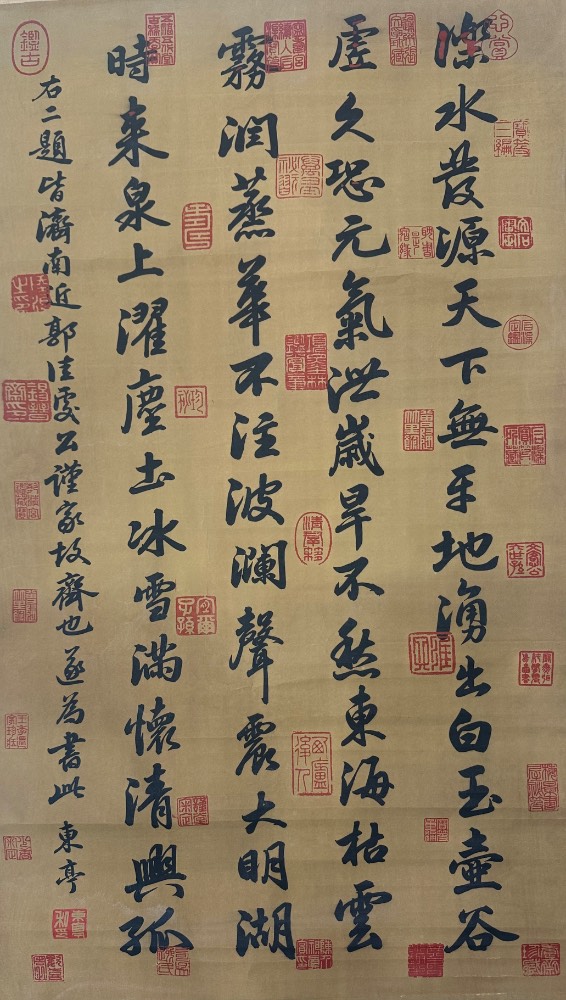 濼水發源天下無平地湧出白玉壺谷
虛久恐元氣泄歲旱不愁東海枯雲
霧潤蒸華不注波瀾聲震大明湖
時来泉上濯塵土冰雪滿懷清興孤
右二題皆濟南近郭佳處公謹家故齊也遂為書此 東亭
鑑古